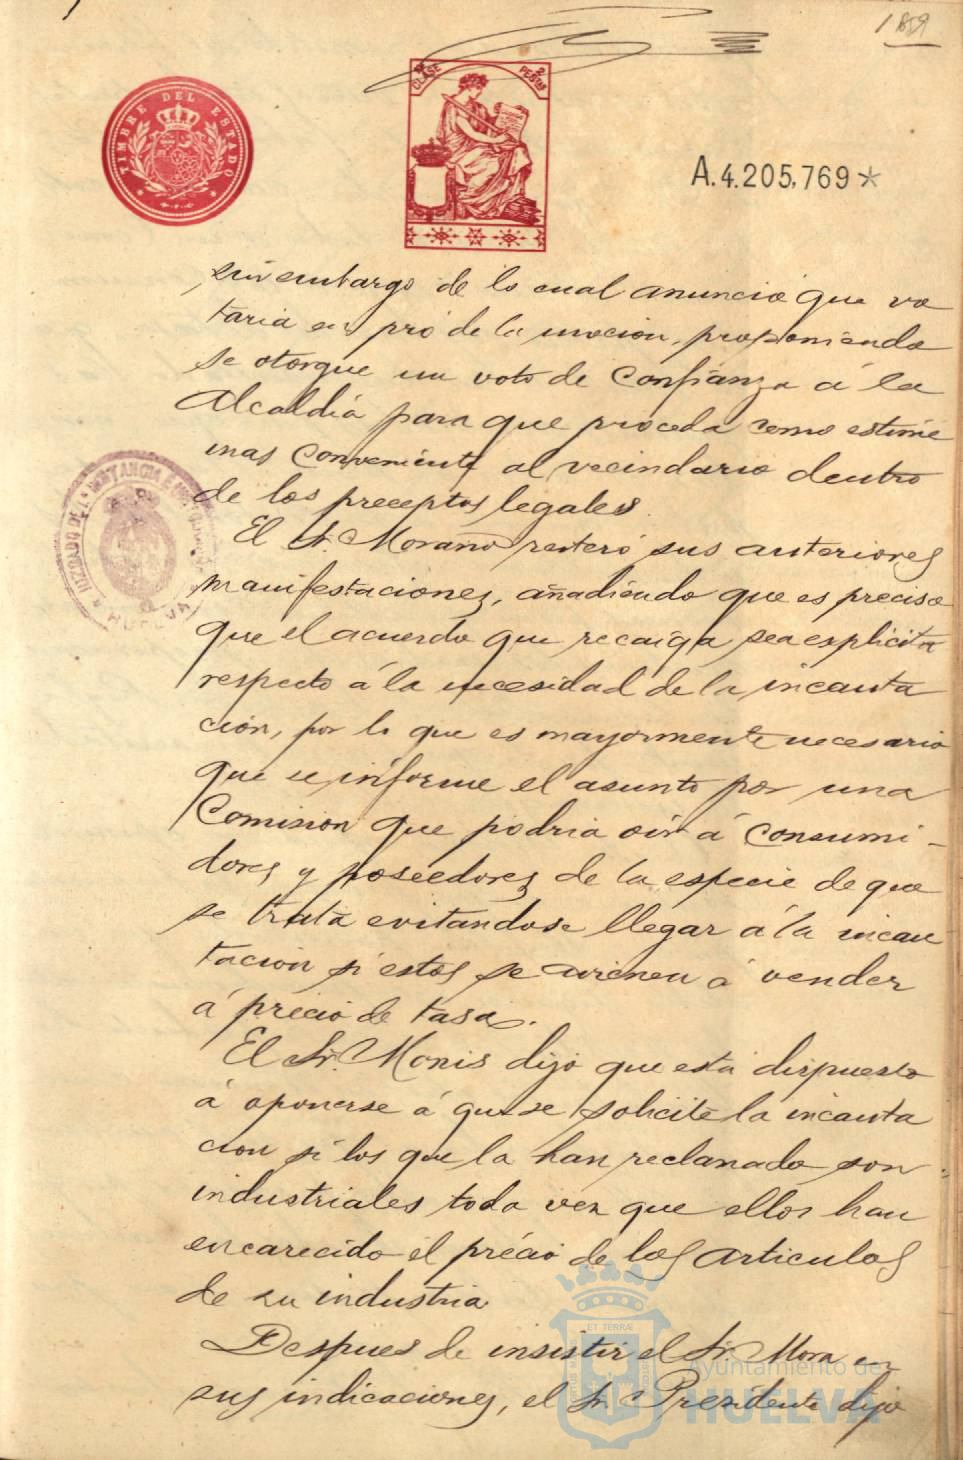 189
TIMBRE DEL ESTADO
CLASE
2 PESETAS
A.4.205,769*
sin embargo de lo cual anunció que vo
taria en pró de la mocion, proponiendo
se otorgue un voto de Confianza á la
Alcaldia para que proceda como estime
mas Conveniente al vecindario dentro
de los preceptos legales.
El Sr. Morano reiteró sus anteriores
manifestaciones, añadiendo que es preciso
que el acuerdo que recaiga sea explicito
respecto á la necesidad de la incauta
ción, por lo que es mayormente necesario
que se informe el asunto por una
Comision que podria oir á Consumi-
dores y poseedores de la especie de que
se trata evitandose llegar á la incau
tacion si estos se avienen á vender
á precio de tasa.
El Sr. Monis dijo que está dispuesto
á oponerse á que se solicite la incauta
cion si los que la han reclamado son
industriales toda vez que ellos han
encarecido el précio de los articulos
de su industria.
Despues de insistir el Sr. Mora en
sus indicaciones, el Sr. Presidente dijo
JUZGADO DE 1ª INSTANCIA E
HUELVA
ET TERRÆ
Ayuntamiento de
HUELVA